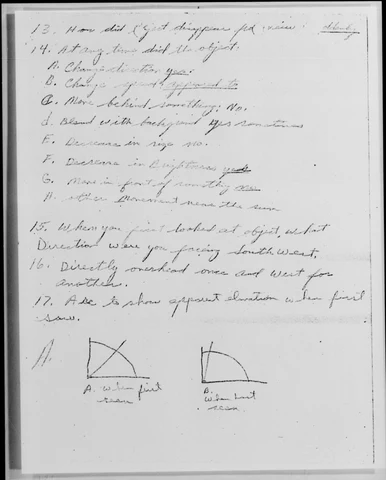 13. How did object disappear from view slowly
14. At any time did the object.
A. Change direction yes.
B. Change speed appeared to
C. Move behind something. No.
d. Blend with background yes sometimes
E. Decrease in size no.
F. Decrease in Brightness
G. Move in front of something
H. other movement near the sun.
15. When you first looked at object, what
Direction were you facing South West.
16. Directly overhead once and West for
another.
17. Arc to show apparent elevation when first
saw.
A.
A. When first
seen
B.
When last
seen.